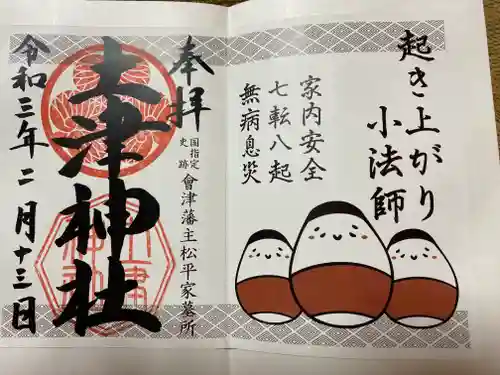 起き上がり
小法師
家内安全
七転八起
無病息災
奉拝
国指定
史跡
會津藩主松平家墓所
土津神社
令和三年二月十三日